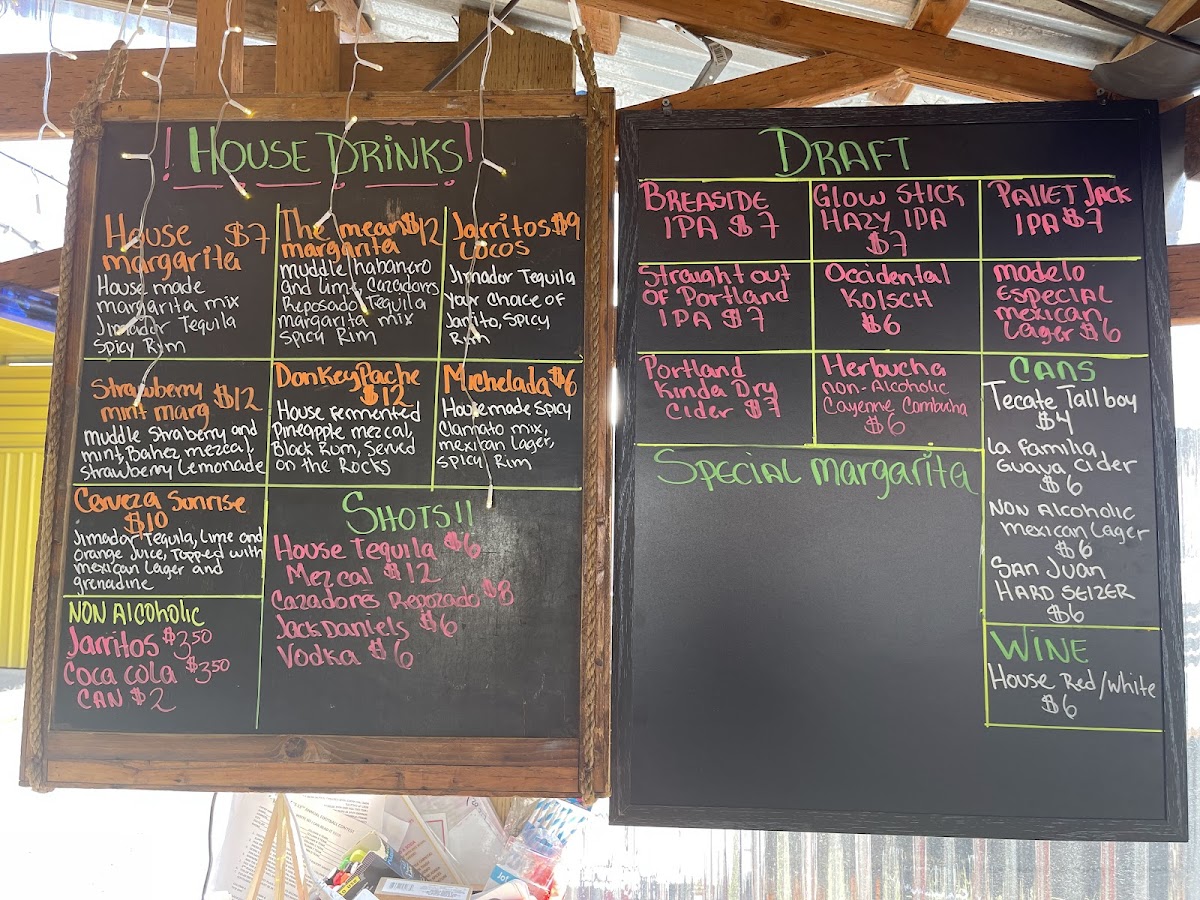 ! HOUSE DRINKS !
House $7
margarita
House made
margarita mix
Jimador Tequila
Spicy Rym
The mean $12
margarita
muddle habanero
and lime, Cazadores
Reposado Tequila
margarita mix
spicy Rim
Jarritos $9
cocos
Jimador Tequila
Your Choice of
Jarrito, Spicy
Rim
Strawberry $12
mint marg
muddle Straberry and
mint, Bahez mezcal,
strawberry Lemonade
Donkey Pache
$12
House fermented
Pineapple mezcal,
Black Rom, Served
on the Rocks
Michelada $6
House made spicy
Clamato mix,
mexican Lager,
spicy Rim
Cerveza Sunrise
$10
Jimador Tequila, Lime and
orange Juice, Topped with
mexican Lager and
grenadine
SHOTS!!
House Tequila $6
Mezcal $12
Cazadores Repozado $8
Jack Daniels $6
Vodka $6
NON Alcoholic
Jarritos $3.50
Coca cola $3.50
CAN $2
DRAFT
BREASIDE
IPA $7
GLOW STICK
HAZY IPA
$7
PALLET JACK
IPA $7
Straight out
of Portland
IPA $7
Occidental
KOLSCH
$6
modelo
ESPECIAL
mexican
Lager $6
Portland
Kinda Dry
Cider $7
Herbucha
NON-Alcoholic
Cayenne Combucha
$6
CANS
Tecate Tall boy
$4
La Familia
Guava Cider
$6
NON Alcoholic
mexican Lager
$6
San Juan
HARD SEIZER
$6
SPECIAL margarita
WINE
House Red/White
$6